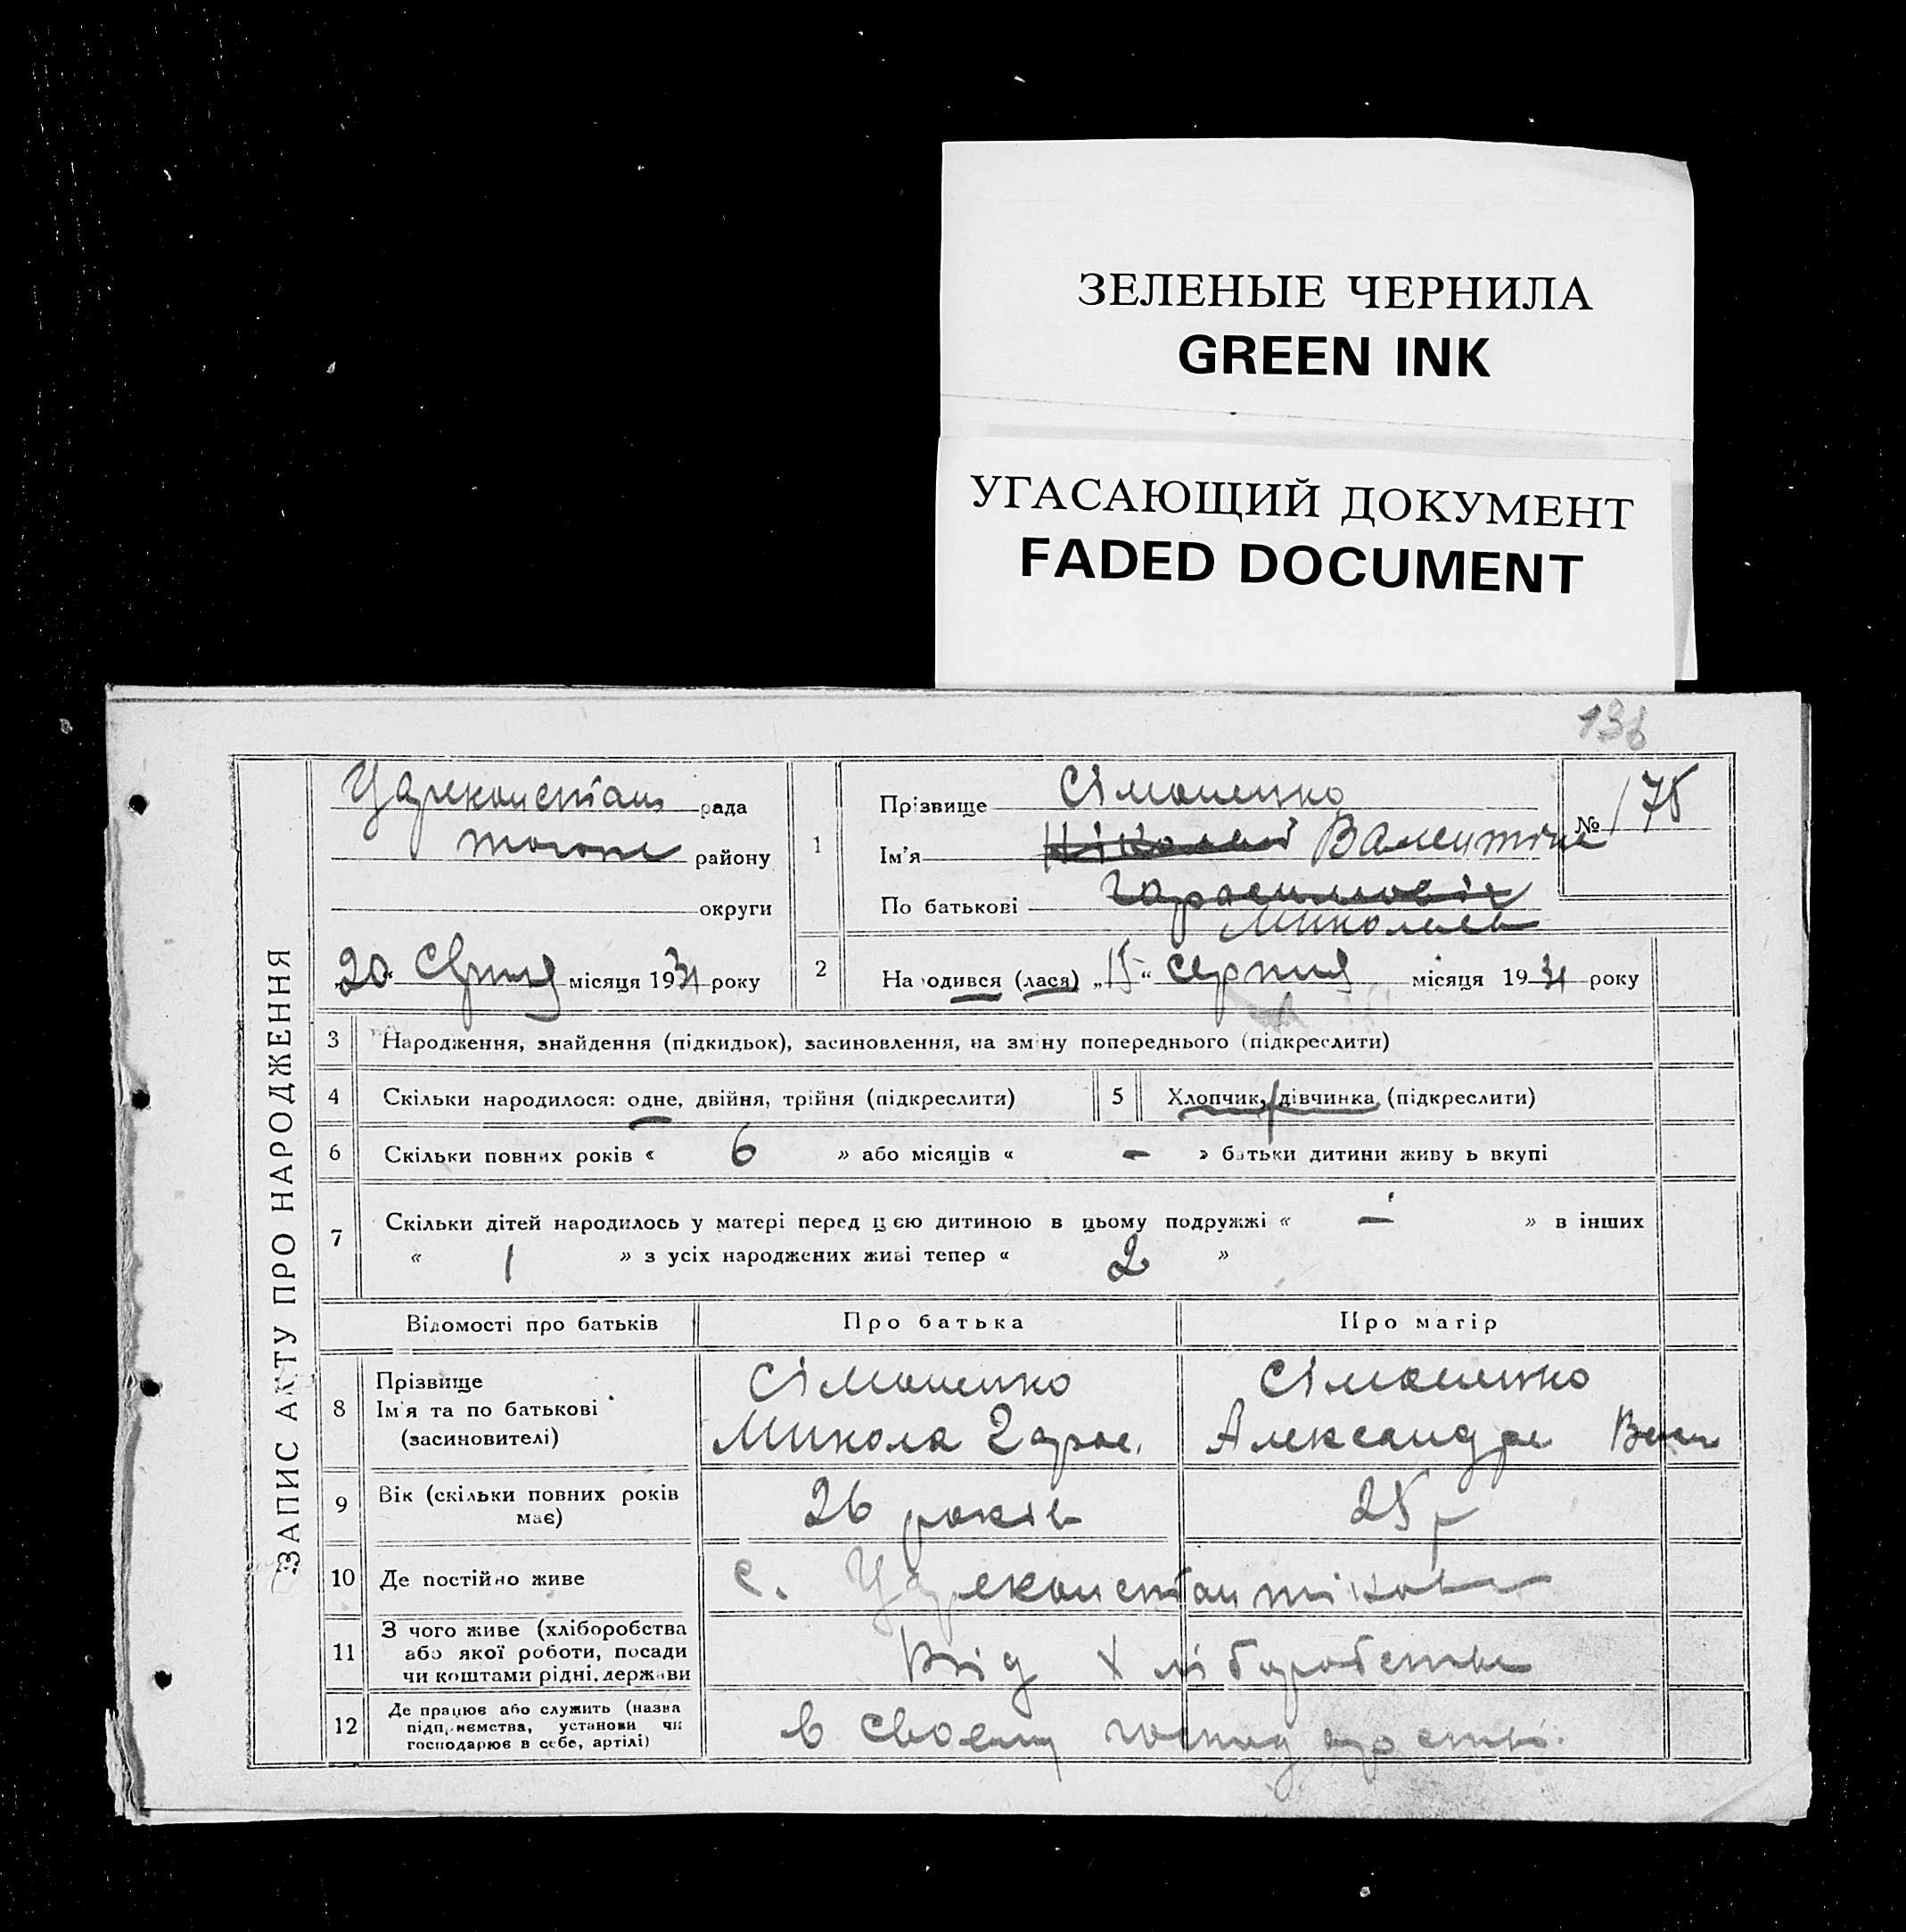 ЗЕЛЕНЫЕ ЧЕРНИЛА
GREEN INK
УГАСАЮЩИЙ ДОКУМЕНТ
FADED DOCUMENT
138
ЗАПИС АКТУ ПРО НАРОДЖЕННЯ
Цареконстан рада
району
округи
„20“ Серпня місяця 1931 року
1
Прізвище Сімоненко
Ім'я Ніколай Валентіна
По батькові Гарасимовіч
Миколаев
№ 175
2 Народився (лася) „15“ серпня місяця 1931 року
3 Народження, знайдення (підкидьок), засиновлення, на зміну попереднього (підкреслити)
4 Скільки народилося: одне, двійня, трійня (підкреслити)
5 Хлопчик, дівчинка (підкреслити)
6 Скільки повних років « 6 » або місяців « — » батьки дитини живуть вкупі
7 Скільки дітей народилось у матері перед цією дитиною в цьому подружжі « — » в інших
« 1 » з усіх народжених живі тепер « 2 »
Відомості про батьків Про батька Про матір
8 Прізвище
Ім'я та по батькові
(засиновителі)
Сімоненко
Микола Гарас.
Сімоненко
Александра
9 Вік (скільки повних років
має)
26 років
25 р
10 Де постійно живе с. Цареконстантіновка
11 З чого живе (хліборобства
або якої роботи, посади
чи коштами рідні, держави
Від хліборобства
12 Де працює або служить (назва
підприємства, установи чи
господарює в себе, артілі)
в своему господарстві.